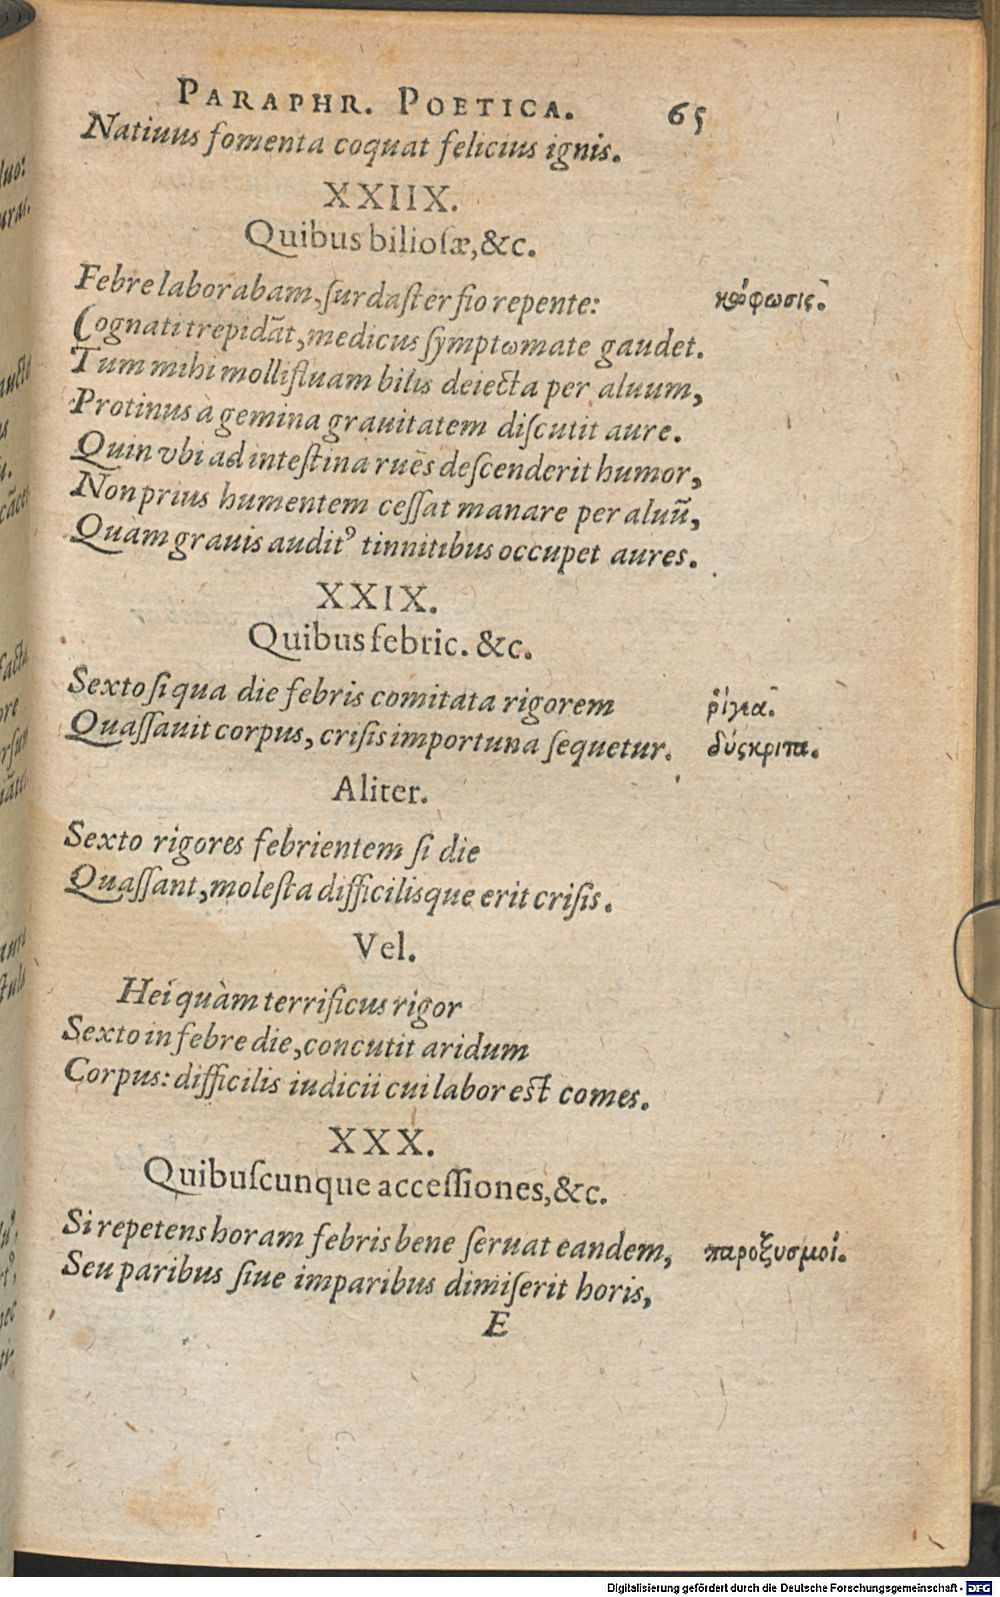 PARAPHR. POETICA. 65
Natiuus fomenta coquat felicius ignis.
XXIIX.
Quibus bilioſæ, &c.
Febre laborabam, ſurdaſter fio repente: κώφωσις.
Cognati trepidãt, medicus ſymptωmate gaudet.
Tum mihi mollifluam bilis deiecta per aluum,
Protinus à gemina grauitatem diſcutit aure.
Quin vbi ad inteſtina ruẽs deſcenderit humor,
Non prius humentem ceſſat manare per aluũ,
Quàm grauis audit⁹ tinnitibus occupet aures.
XXIX.
Quibus febric. &c.
Sexto ſi qua die febris comitata rigorem ῥίγεα.
Quaſſauit corpus, criſis importuna ſequetur. δύςκριτα.
Aliter.
Sexto rigores febrientem ſi die
Quaſſant, moleſta difficilisque erit criſis.
Vel.
Hei quàm terrificus rigor
Sexto in febre die, concutit aridum
Corpus: difficilis iudicii cui labor eſt comes.
XXX.
Quibuſcunque acceſſiones, &c.
Si repetens horam febris bene ſeruat eandem, παροξυσμοί.
Seu paribus ſiue imparibus dimiſerit horis,
E
luo:
uras.
Digitalisierung gefördert durch die Deutsche Forschungsgemeinschaft - DFG